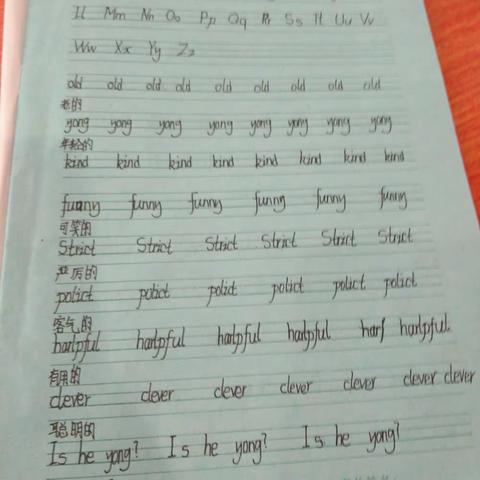 Ll Mm Nn Oo Pp Qq Rr Ss Tt Uu Vv
Ww Xx Yy Zz
old old old old old old old old
老的
yong yong yong yong yong yong yong yong
年轻的
kind kind kind kind kind kind kind kind
funny funny funny funny funny funny
可笑的
Strict Strict Strict Strict Strict Strict
严厉的
polict polict polict polict polict polict
客气的
harlpful harlpful harlpful harlpful harf harlpful
有用的
clever clever clever clever clever clever clever
聪明的
Is he yong? Is he yong? Is he yong?